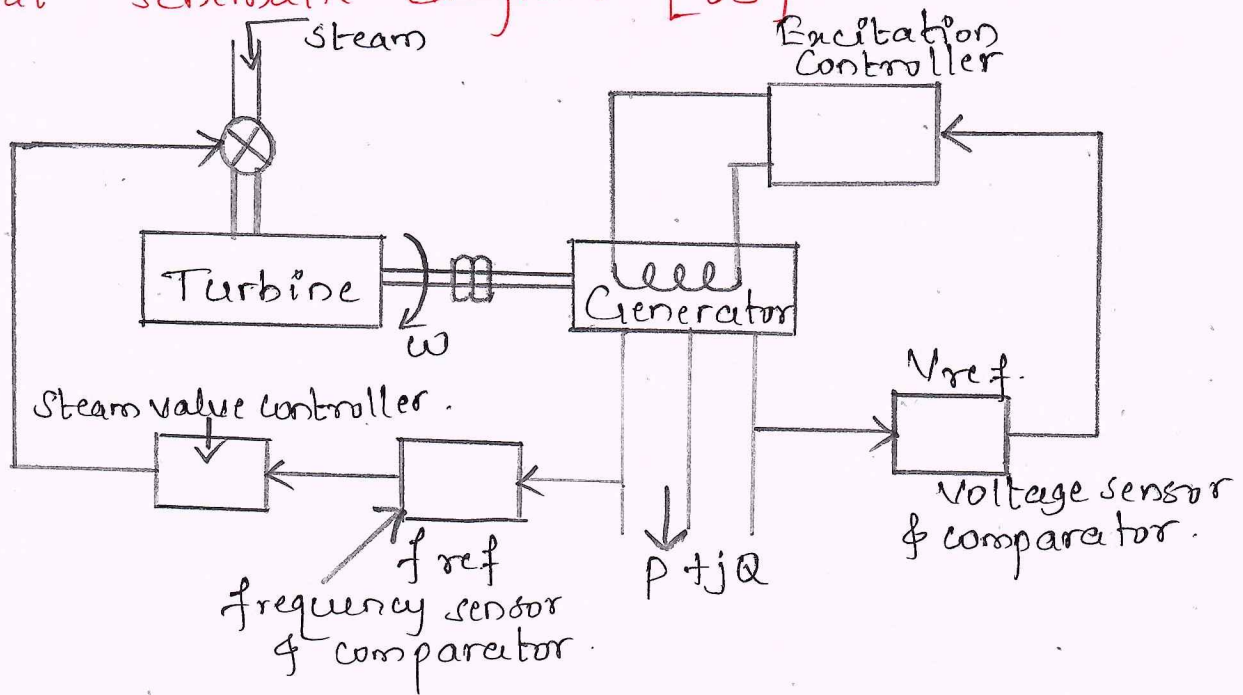 Steam
Excitation
Controller
Turbine
ω
Generator
Vref.
Steam value controller.
Voltage sensor
& comparator.
f ref
P +jQ
frequency sensor
& comparator.